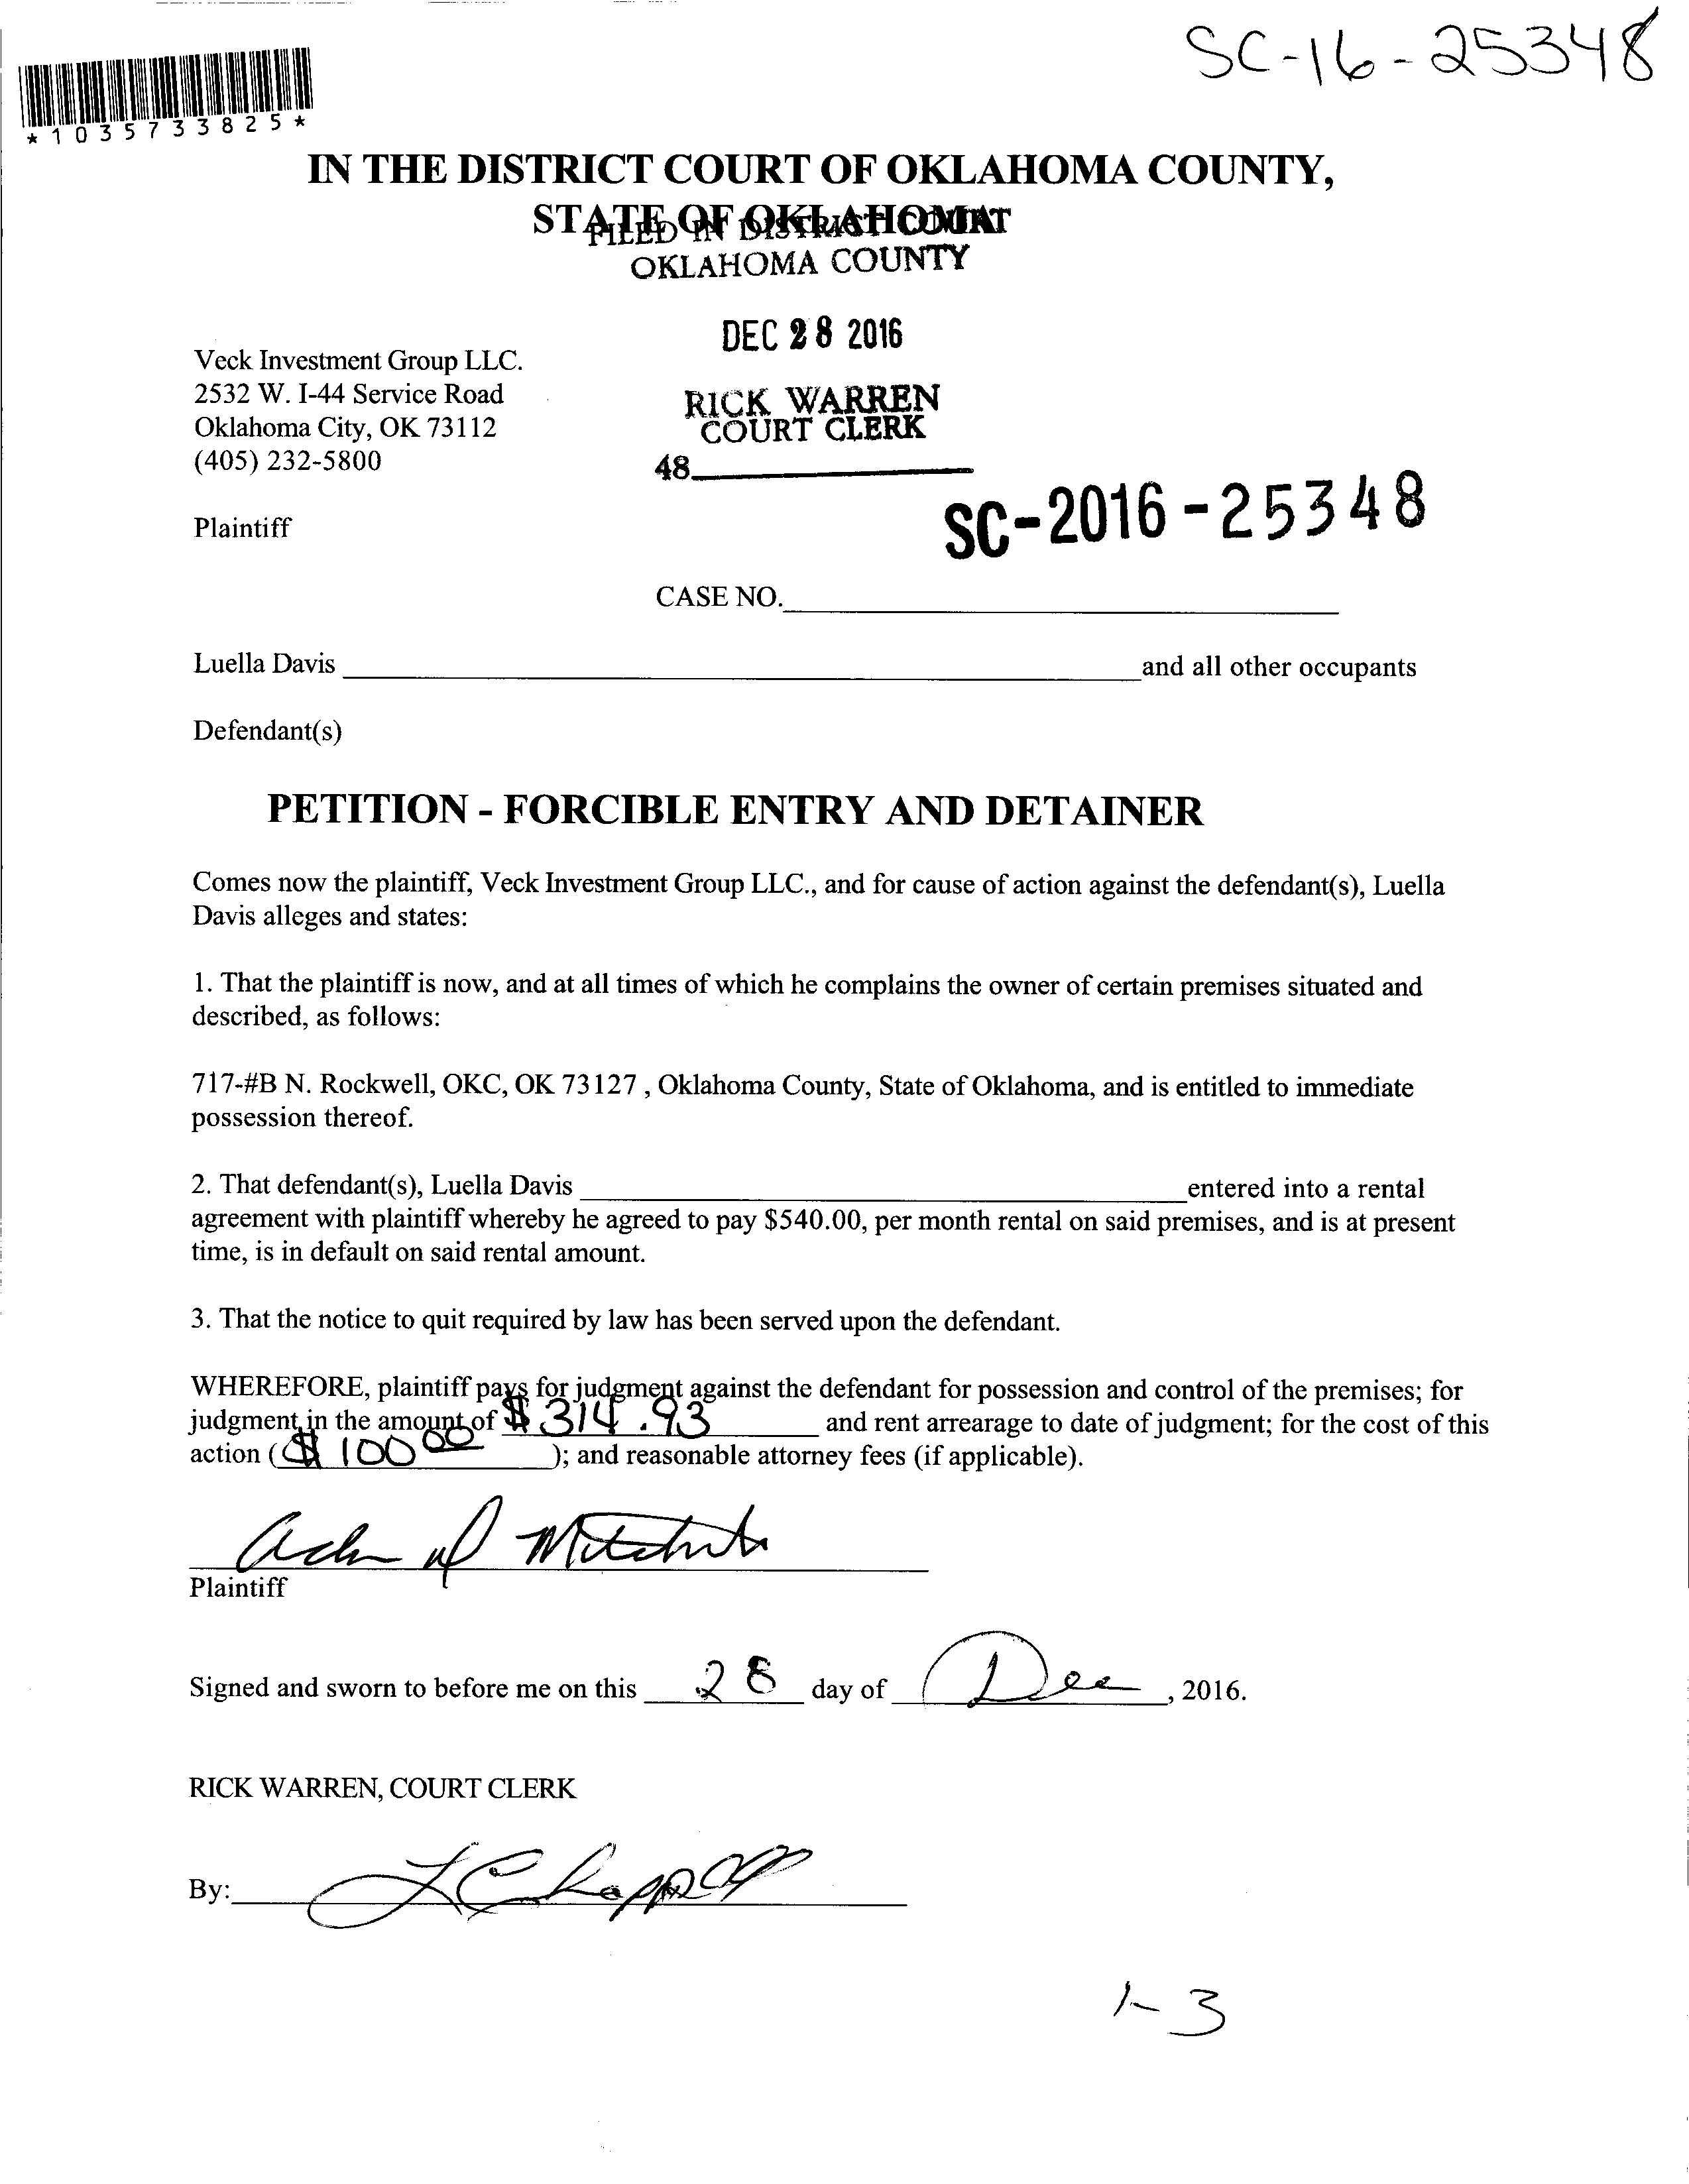 SC-16-25348
*1035733825*
IN THE DISTRICT COURT OF OKLAHOMA COUNTY,
STATE OF OKLAHOMA
FILED IN DISTRICT COURT
OKLAHOMA COUNTY
DEC 28 2016
Veck Investment Group LLC.
2532 W. I-44 Service Road
Oklahoma City, OK 73112
(405) 232-5800
RICK WARREN
COURT CLERK
48
Plaintiff
SC-2016-25348
CASE NO.
Luella Davis and all other occupants
Defendant(s)
PETITION - FORCIBLE ENTRY AND DETAINER
Comes now the plaintiff, Veck Investment Group LLC., and for cause of action against the defendant(s), Luella
Davis alleges and states:
1. That the plaintiff is now, and at all times of which he complains the owner of certain premises situated and
described, as follows:
717-#B N. Rockwell, OKC, OK 73127 , Oklahoma County, State of Oklahoma, and is entitled to immediate
possession thereof.
2. That defendant(s), Luella Davis entered into a rental
agreement with plaintiff whereby he agreed to pay $540.00, per month rental on said premises, and is at present
time, is in default on said rental amount.
3. That the notice to quit required by law has been served upon the defendant.
WHEREFORE, plaintiff pays for judgment against the defendant for possession and control of the premises; for
judgment in the amount of $314.93 and rent arrearage to date of judgment; for the cost of this
action ($10000); and reasonable attorney fees (if applicable).
Plaintiff
Signed and sworn to before me on this 28 day of Dec, 2016.
RICK WARREN, COURT CLERK
By:
1-3